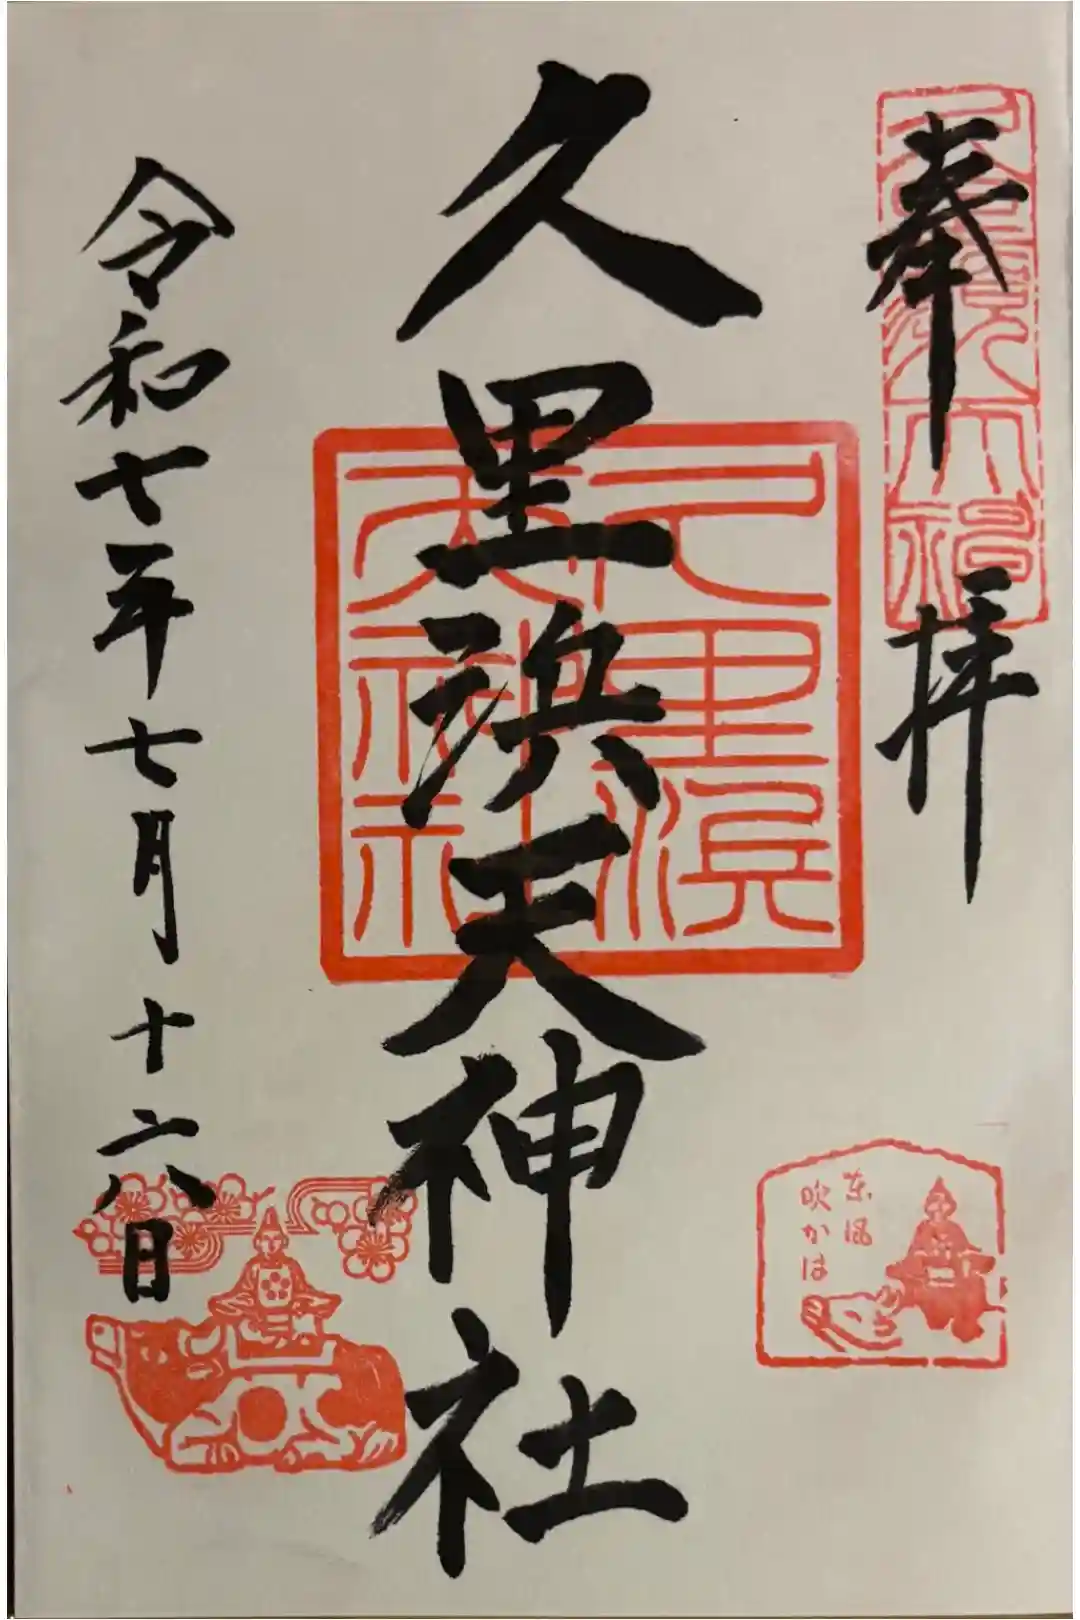 奉拝
東風
吹かは
久里浜天神社
久里濱
天神社
令和七年七月十六日